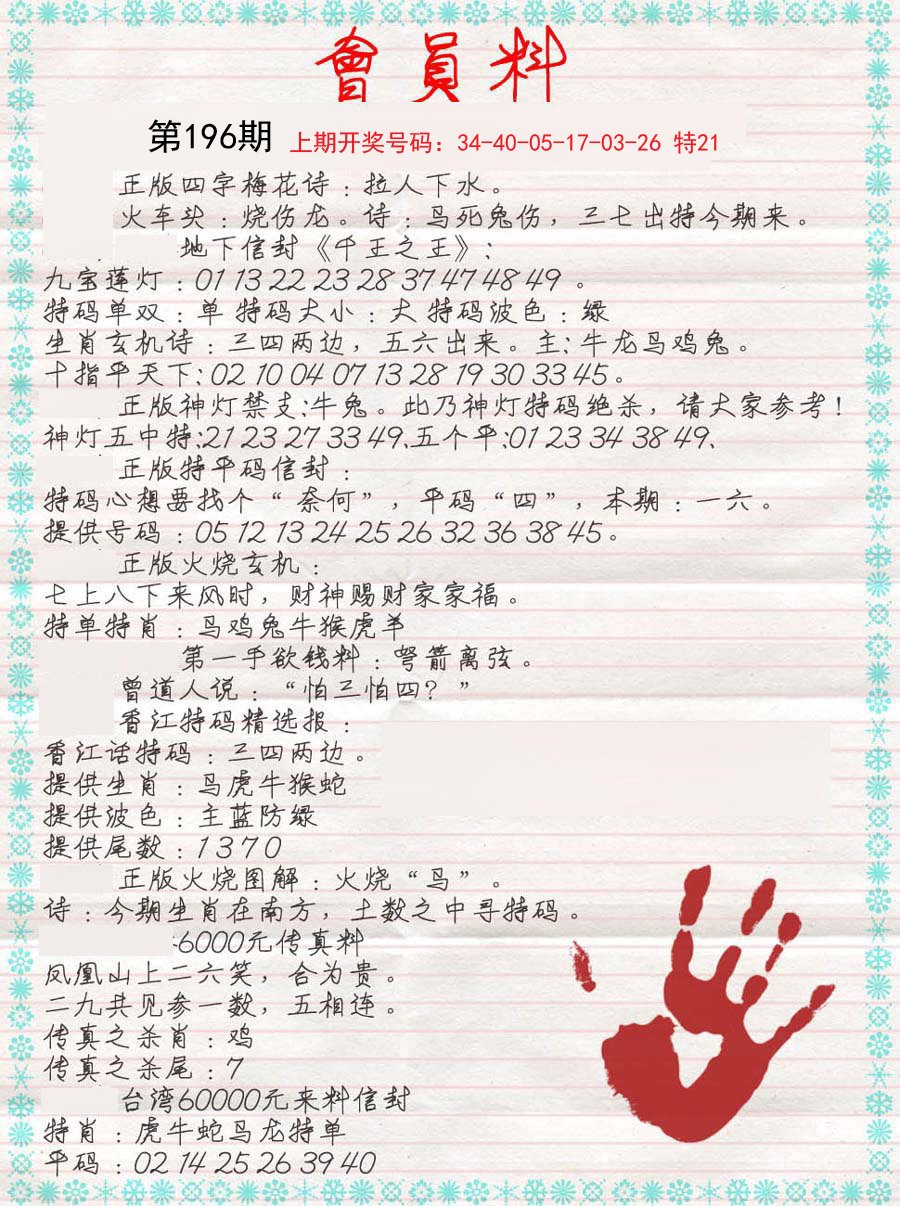 會員料
第196期 上期开奖号码：34-40-05-17-03-26 特21
正版四字梅花诗：拉人下水。
火车头：烧伤龙。诗：鸟死兔伤，三七出特今期来。
地下信封《千王之王》：
九宝莲灯：01 13 22 23 28 37 47 48 49 。
特码单双：单 特码大小：大 特码波色：绿
生肖玄机诗：三四两边，五六出来。主：牛龙鸟鸡兔。
十指平天下：02 10 04 07 13 28 19 30 33 45。
正版神灯禁支：牛兔。此乃神灯特码绝杀，请大家参考！
神灯五中特：21 23 27 33 49、五个平：01 23 34 38 49、
正版特平码信封：
特码心想要找个“奈何”，平码“四”，本期：一六。
提供号码：05 12 13 24 25 26 32 36 38 45。
正版火烧玄机：
七上八下来风时，财神赐财家家福。
特单特肖：鸟鸡兔牛猴虎羊
第一手欲钱料：弩箭离弦。
曾道人说：“怕三怕四？”
香江特码精选报：
香江话特码：三四两边。
提供生肖：鸟虎牛猴蛇
提供波色：主蓝防绿
提供尾数：1 3 7 0
正版火烧图解：火烧“鸟”。
诗：今期生肖在南方，土数之中寻特码。
6000元传真料
凤凰山上二六笑，合为贵。
二九共见参一数，五相连。
传真之杀肖：鸡
传真之杀尾：7
台湾60000元来料信封
特肖：虎牛蛇鸟龙特单
平码：02 14 25 26 39 40